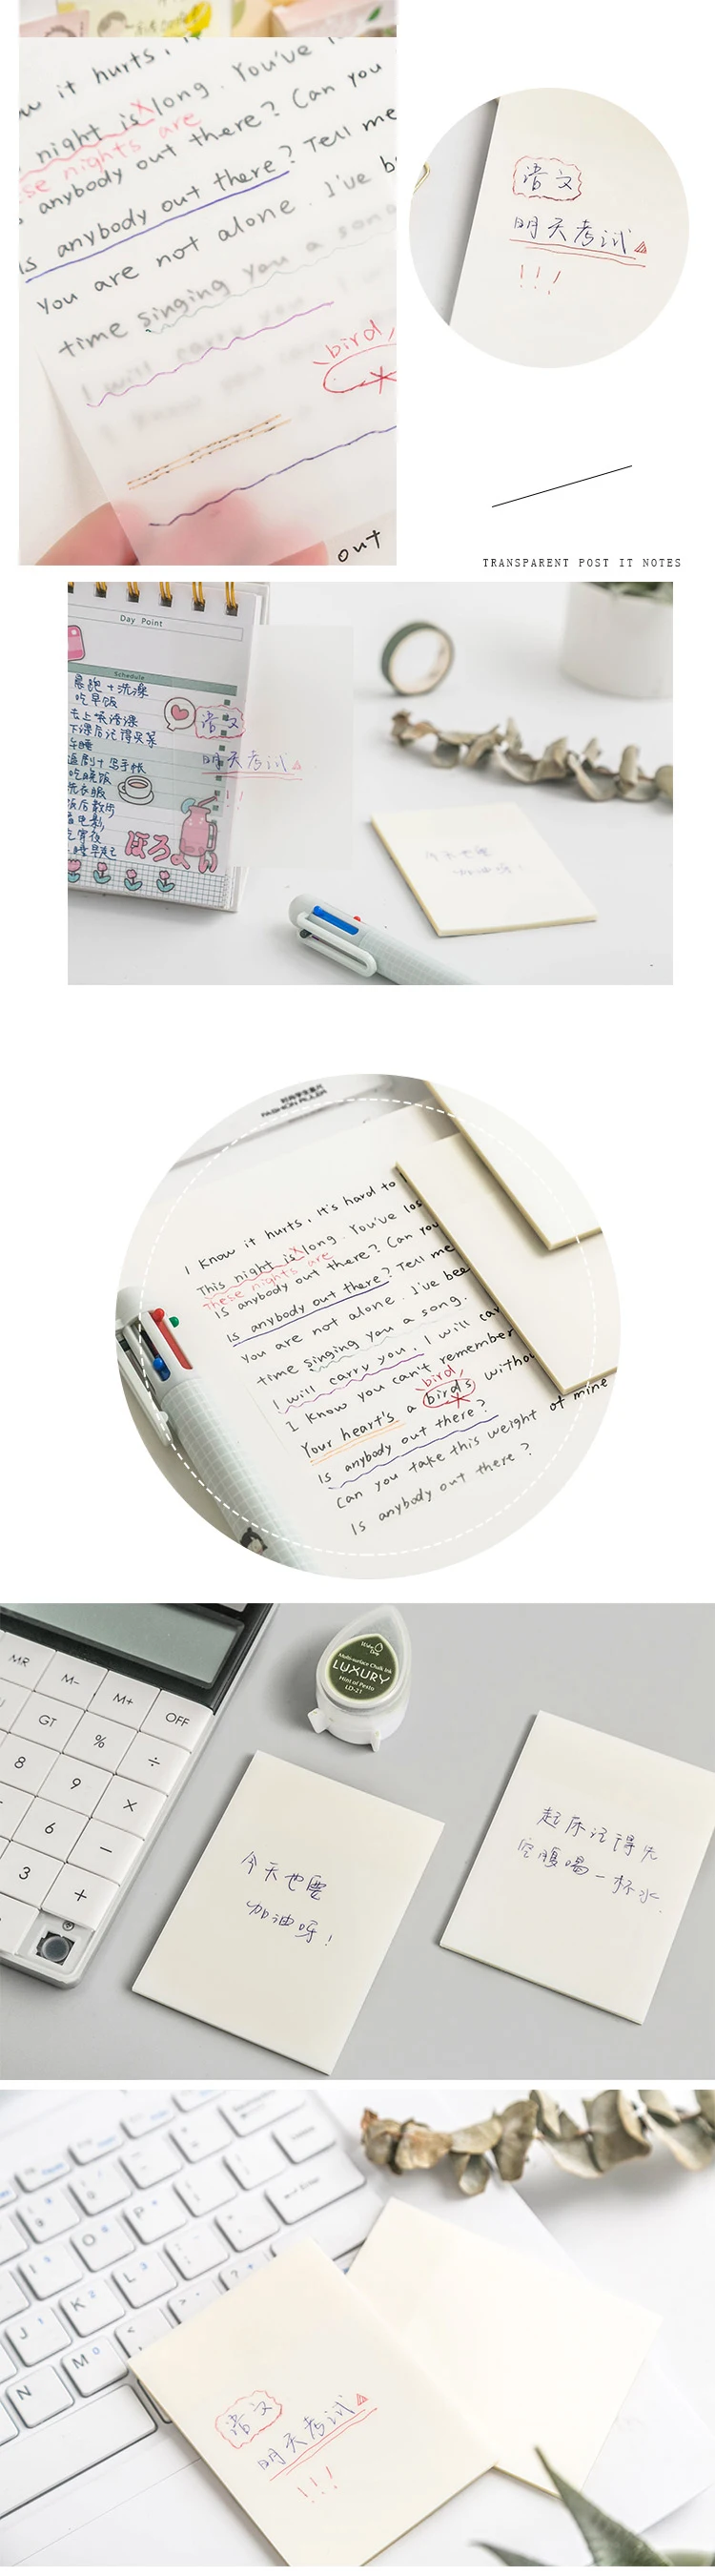 w it hurts, it
night is long. You've l
these nights are
anybody out there? Can you
is anybody out there? Tell me
You are not alone. I've b
time singing you a song
I will carry you
I know you can't
bird
out
语文
明天考试
!!!
TRANSPARENT POST IT NOTES
Day Point
Schedule
晨跑+洗澡
吃早饭
去上英语课
下课后记得买菜
午睡
追剧+写手帐
吃晚饭
洗衣服
饭后散步
看电影
吃宵夜
早起
ほろよい
语文
明天考试
!!
今天也要
加油呀!
时尚学生直尺
FASHION RULER
I know it hurts, it's hard to
This night is long. You've los
These nights are
Is anybody out there? Can you
Is anybody out there? Tell me
You are not alone. I've bee
time singing you a song.
I will carry you. I will car
I know you can't remember
bird
Your heart's a birds withou
Is anybody out there?
Can you take this weight of mine
Is anybody out there?
MR
M-
M+
OFF
GT
%
÷
8
9
×
6
−
3
+
Multi-surface Chalk Ink
LUXURY
Hint of Pesto
LD-21
今天也要
加油呀!
起床记得先
空腹喝一杯水.
Enter
I
O
P
J
K
L
N
M
语文
明天考试
!!!